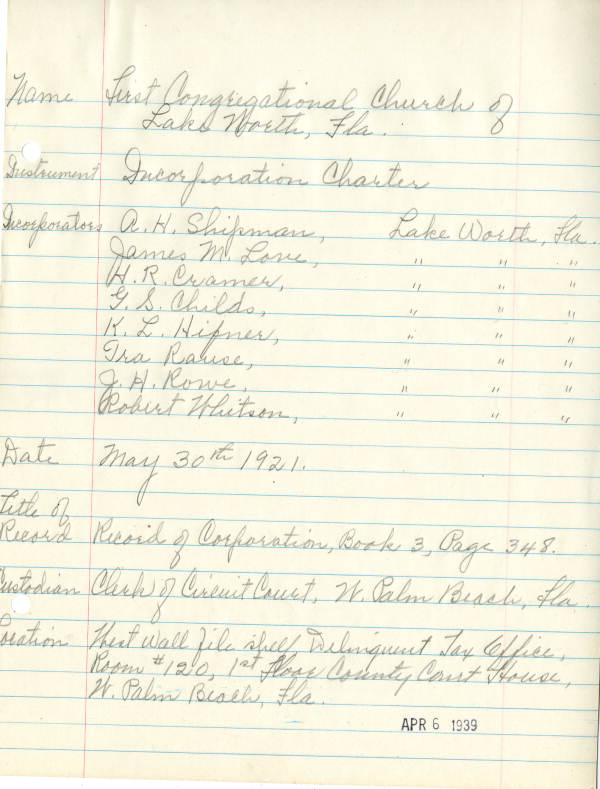 Name First Congregational Church of
Lake Worth, Fla.
Instrument Incorporation Charter
Incorporators A. H. Shipman, Lake Worth, Fla.
James M. Love, " " "
H. R. Cramer, " " "
G. S. Childs, " " "
K. L. Hipner, " " "
Ira Rause, " " "
J. H. Rowe, " " "
Robert Whitson, " " "
Date May 30th 1921.
Title of
Record Record of Corporation, Book 3, Page 348.
Custodian Clerk of Circuit Court, W. Palm Beach, Fla.
Location West Wall file shelf Delinquent Tax Office,
Room #120, 1st Floor County Court House,
W. Palm Beach, Fla.
APR 6 1939